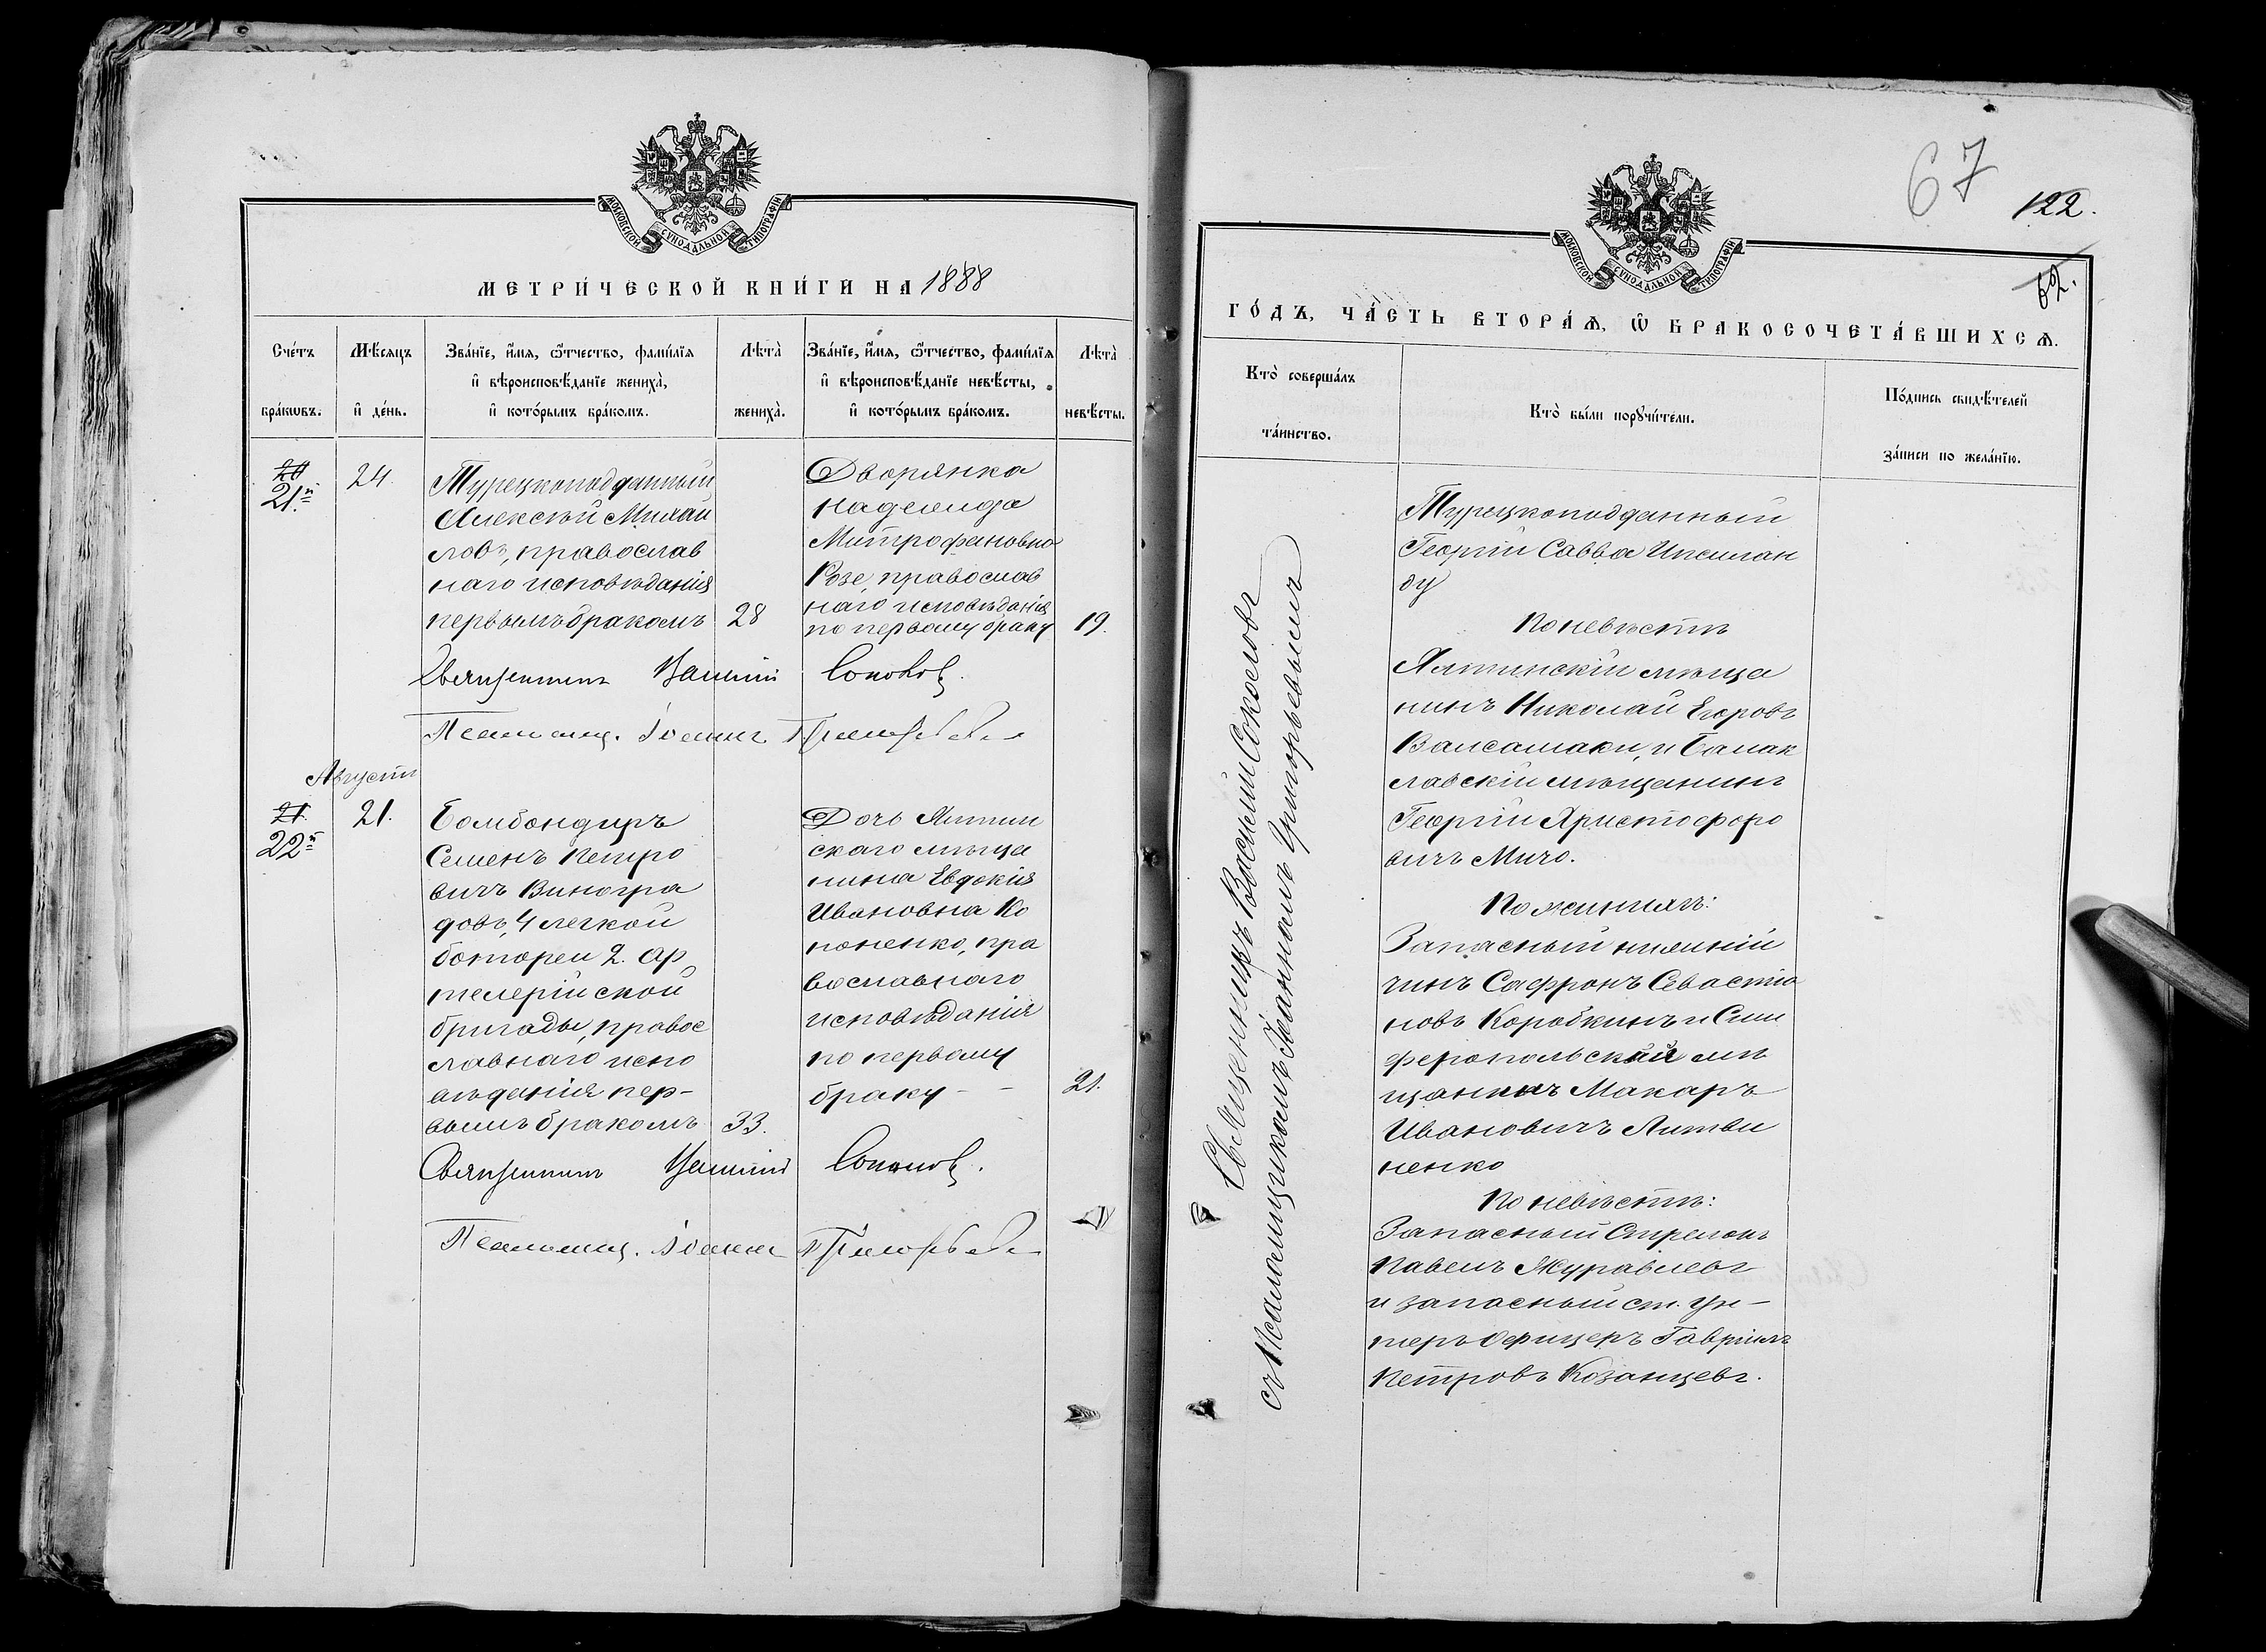 МОСКОВСКОЙ СѴНОДАЛЬНОЙ ТИПОГРАФІИ
МЕТРИ́ЧЕСКОЙ КНИ́ГИ НА 1888
Сче́тъ бра́кѡвъ.
Мѣ́сяцъ и҆ де́нь.
Зва́нїе, и҆́мя, ѻ҆́тчество, фами́лїя
и҆ вѣроисповѣ́данїе жениха̀,
и҆ кото́рымъ бра́комъ.
Лѣта̀ жениха̀.
Зва́нїе, и҆́мя, ѻ҆́тчество, фами́лїя
и҆ вѣроисповѣ́данїе невѣ́сты,
и҆ кото́рымъ бра́комъ.
Лѣта̀ невѣ́сты.
20
21й
24
Турецкоподданный
Алексѣй Михай
ловъ, православ
наго исповѣданія
первымъ бракомъ
28
Дворянка
Надежда
Митрофановна
Розе православ
наго исповѣданія
по первому браку
19.
Священникъ Василій Соколовъ.
Псаломщ. Іоаннъ Григорьевъ
Августъ
21.
22й
21.
Бомбондиръ
Семенъ Петро
вичъ Виногра
довъ, 4 легкой
ботореи 2. ар
телерійской
бригады, правос
лавнаго испо
вѣданія пер-
вымъ бракомъ
33.
Дочь Ялтин
скаго мѣща
нина Евдокія
Ивановна Ко
ноненко, пра
вославнаго
исповѣданія
по первому
браку - -
21.
Священникъ Василій Соколовъ.
Псаломщ. Іоаннъ Григорьевъ
67
122.
62.
МОСКОВСКОЙ СѴНОДАЛЬНОЙ ТИПОГРАФІИ
ГО́ДЪ, ЧА́СТЬ ВТОРА́Я, Ѽ БРАКОСОЧЕТА́ВШИХСЯ.
Кто̀ соверша́лъ
та́инство.
Кто̀ бы́ли порꙋчи́тели.
По́дпись свидѣ́телей
за́писи по жела́нїю.
Священникъ Василій Соколовъ
съ Псаломщикомъ Іоанномъ Григорьевымъ
Турецкоподданный
Георгій Савва Ипсилан
ду
По невѣстѣ
Ялтинскій мѣща
нинъ Николай Егоровъ
Валсамаки, и Балак
лавскій мѣщанинъ
Георгій Христофоро
вичъ Мичо.
По женихѣ:
Запасный нижній
чинъ Сафронъ Севастіа
новъ Коробкинъ и Сим
феропольскій мѣ
щанинъ Макаръ
Ивановичъ Литви
ненко
По невѣстѣ:
Запасный Стрелокъ
Павелъ Журавлевъ
и запасный ст. ун-
теръ офицеръ Гавріилъ
Петровъ Козанцевъ.